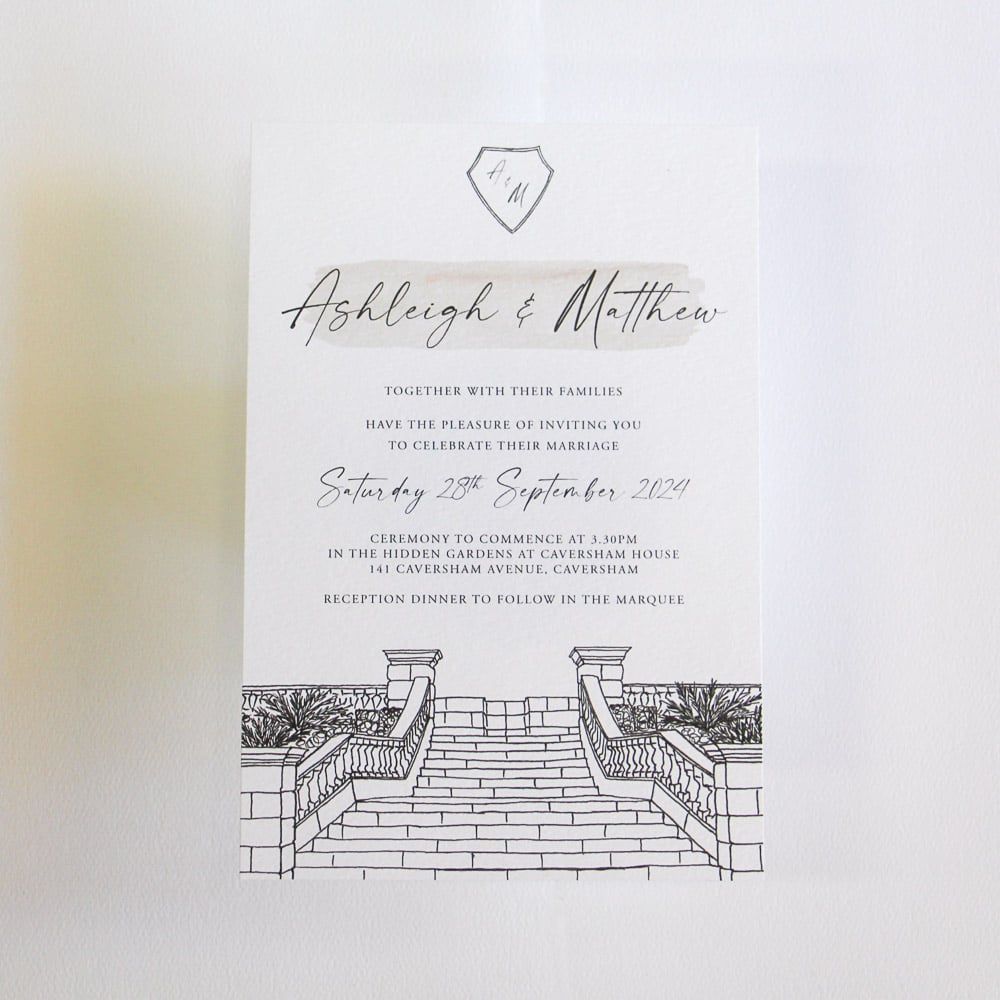 A & M
Ashleigh & Matthew
TOGETHER WITH THEIR FAMILIES
HAVE THE PLEASURE OF INVITING YOU
TO CELEBRATE THEIR MARRIAGE
Saturday 28th September 2024
CEREMONY TO COMMENCE AT 3.30PM
IN THE HIDDEN GARDENS AT CAVERSHAM HOUSE
141 CAVERSHAM AVENUE, CAVERSHAM
RECEPTION DINNER TO FOLLOW IN THE MARQUEE